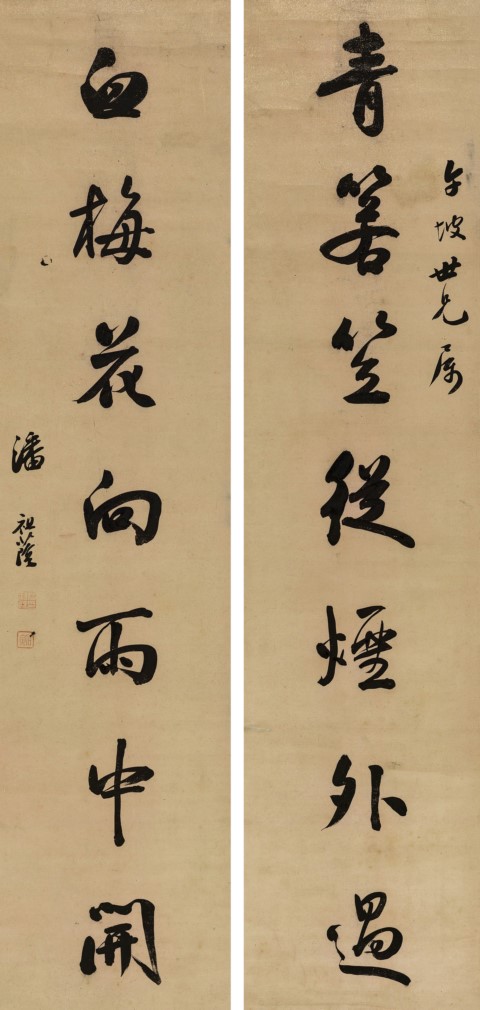 午坡世兄属
青箬笠從煙外過
白梅花向雨中開
潘祖蔭